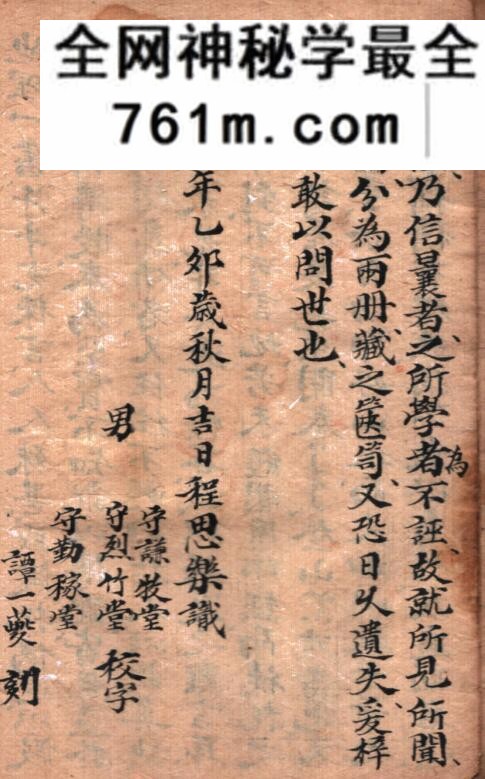 全网神秘学最全
761m.com
乃信曩者之所學者為不誣故就所見所聞
分為兩册藏之篋笥又恐日久遺失爰梓
敢以問世也
年乙卯歲秋月吉日程思樂識
男
守謙牧堂
守烈竹堂 校字
守勤稼堂
譚一夔 刻